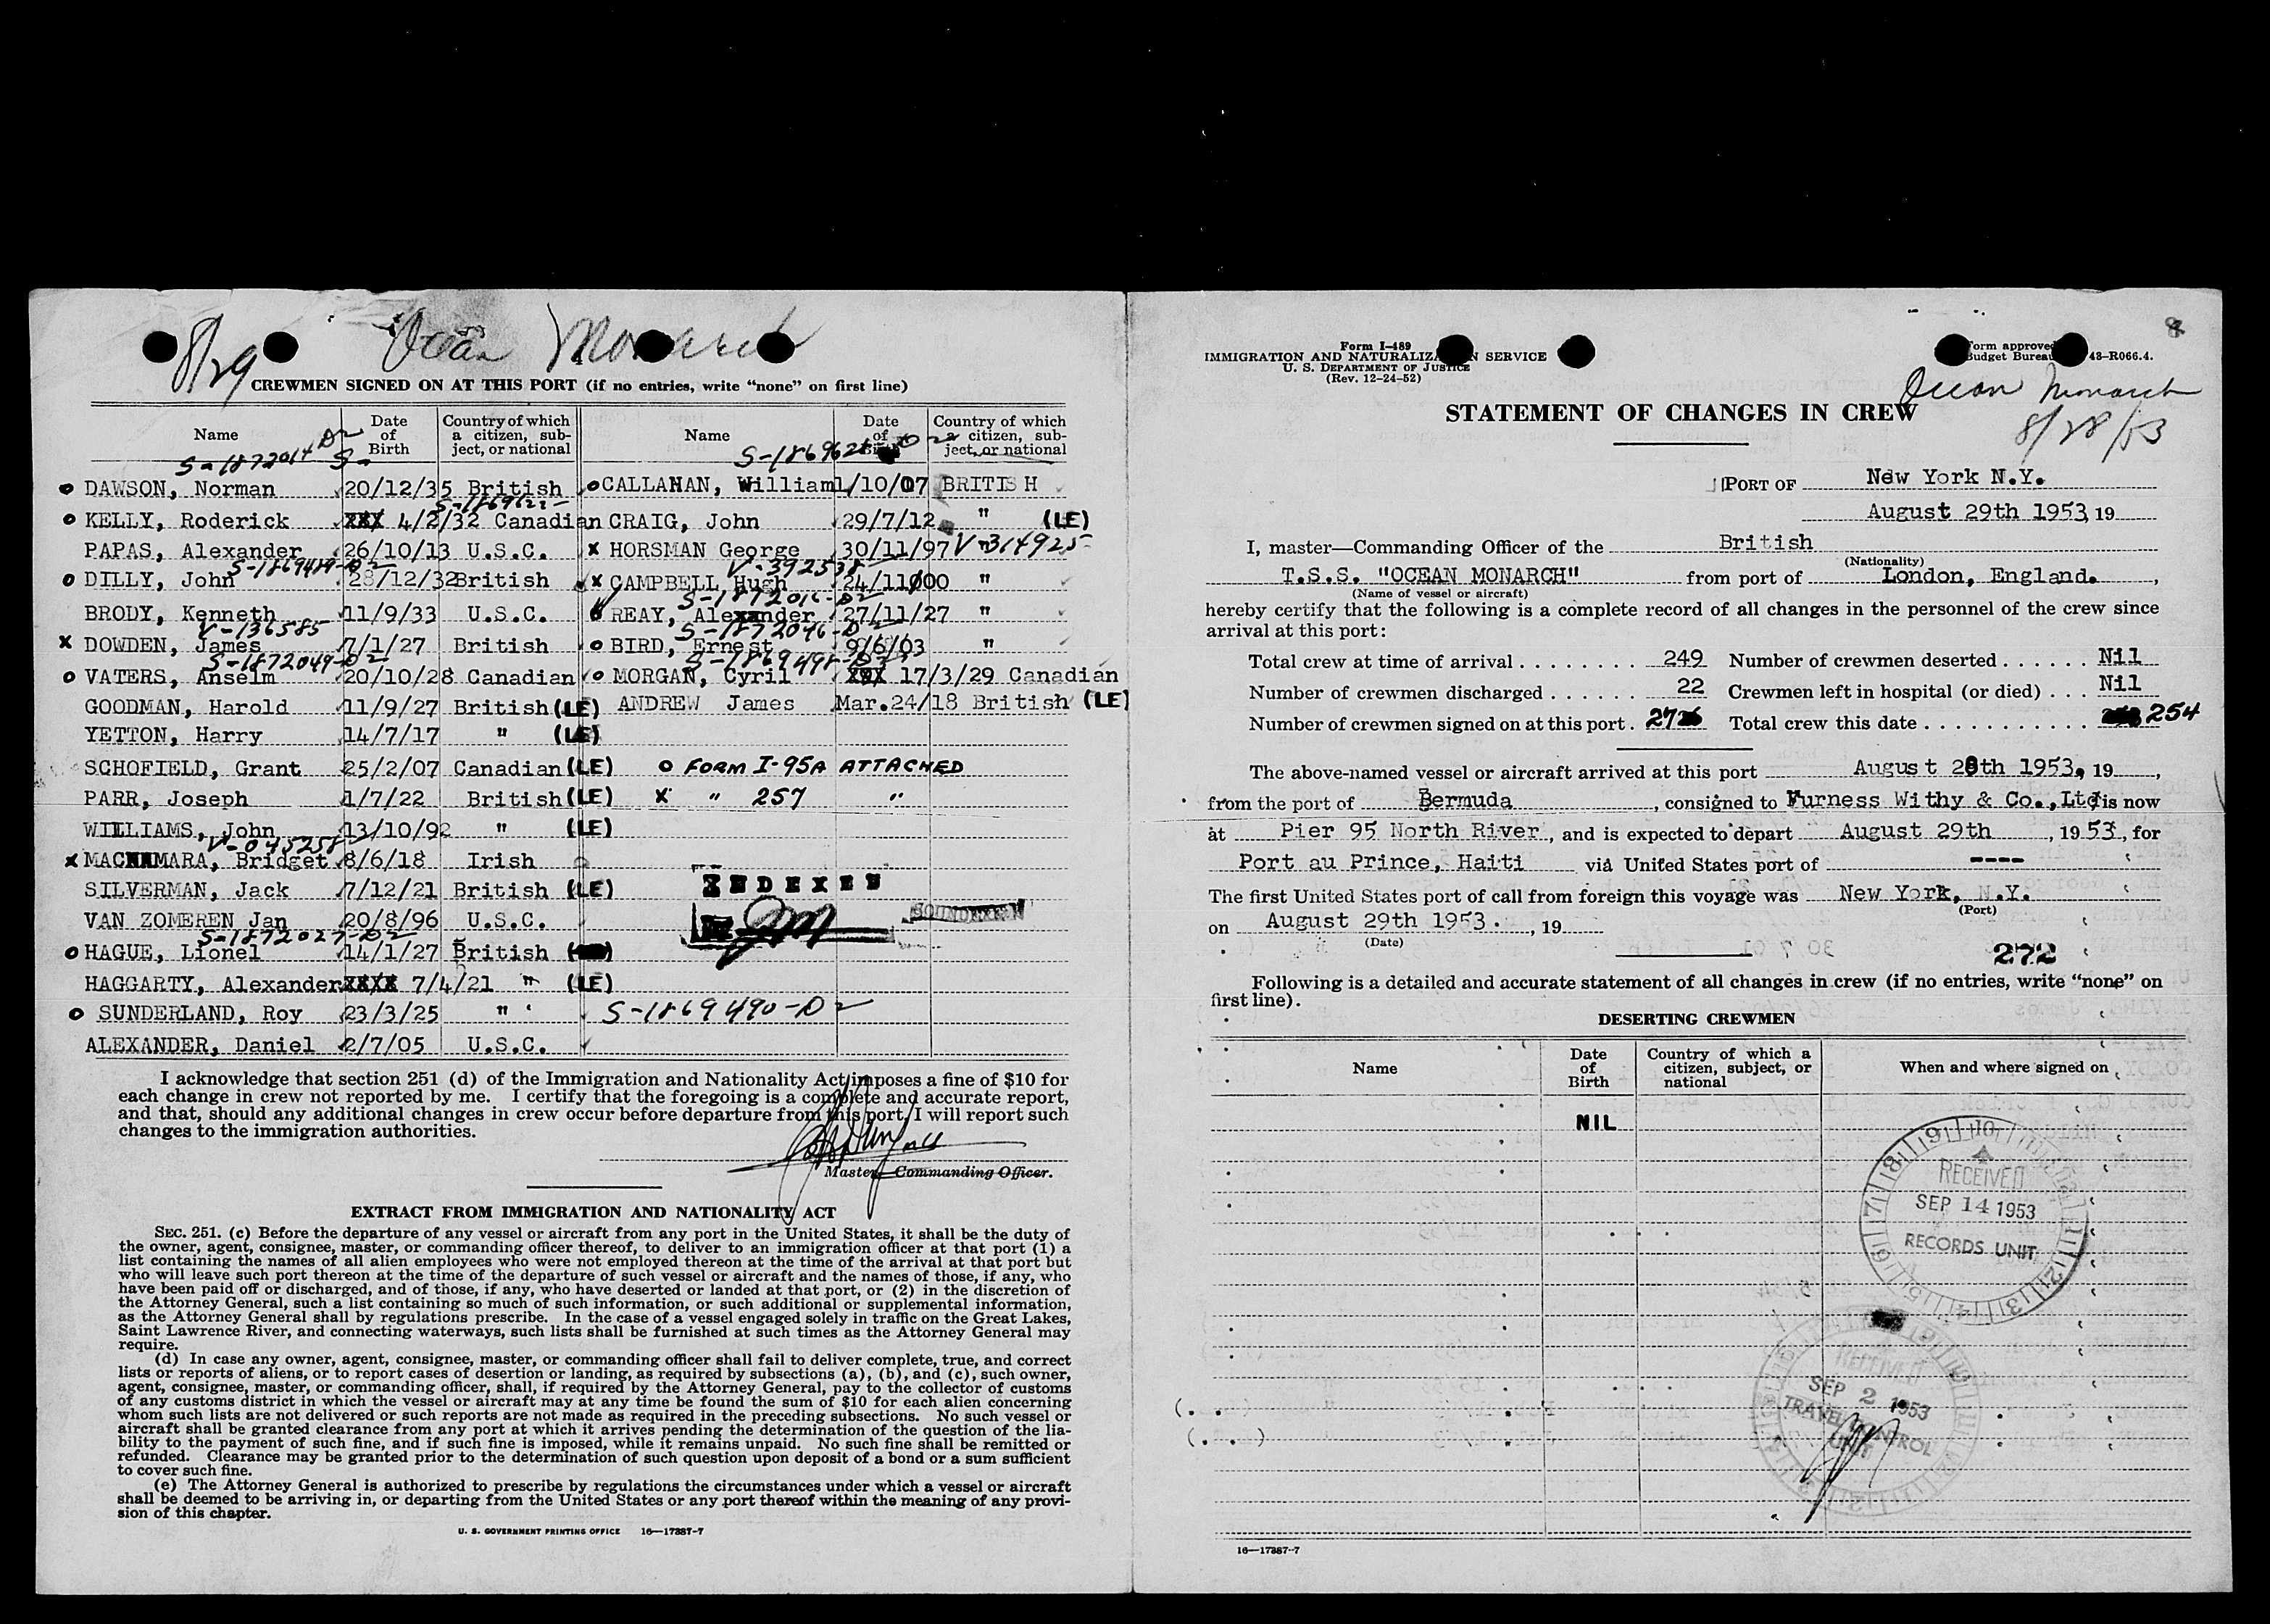 8/29 Ocean Monarch
CREWMEN SIGNED ON AT THIS PORT (if no entries, write “none” on first line)
Name Date of Birth Country of which a citizen, subject, or national Name Date of Birth Country of which a citizen, subject, or national
S-1872014 D2 S-
o DAWSON, Norman 20/12/35 British o CALLAHAN, William 1/10/07 BRITISH
o KELLY, Roderick XXX 4/2/32 Canadian CRAIG, John 29/7/12 " (LE)
PAPAS, Alexander 26/10/13 U.S.C. x HORSMAN George 30/11/97 V-314925
S-1869489-D2 V-392538
o DILLY, John 28/12/32 British x CAMPBELL Hugh 24/11/00 "
S-1872016-D2
BRODY, Kenneth 11/9/33 U.S.C. o REAY, Alexander 27/11/27 "
V-136585 S-1872046-D2
x DOWDEN, James 7/1/27 British o BIRD, Ernest 9/6/03 "
S-1872049-D2 S-1869498-D2
o VATERS, Anselm 20/10/28 Canadian o MORGAN, Cyril XXX 17/3/29 Canadian
GOODMAN, Harold 11/9/27 British (LE) ANDREW James Mar.24/18 British (LE)
YETTON, Harry 14/7/17 " (LE)
SCHOFIELD, Grant 25/2/07 Canadian (LE) o FORM I-95A ATTACHED
PARR, Joseph 1/7/22 British (LE) X " 257 "
WILLIAMS, John 13/10/92 " (LE)
V-045258
x MACNAMARA, Bridget 8/6/18 Irish
SILVERMAN, Jack 7/12/21 British (LE) INDEXED
VAN ZOMEREN Jan 20/8/96 U.S.C. SOUNDEXED
S-1872027-D2
o HAGUE, Lionel 14/1/27 British
HAGGARTY, Alexander XXXX 7/4/21 " (LE)
o SUNDERLAND, Roy 23/3/25 " S-1869490-D2
ALEXANDER, Daniel 2/7/05 U.S.C.
I acknowledge that section 251 (d) of the Immigration and Nationality Act imposes a fine of $10 for
each change in crew not reported by me. I certify that the foregoing is a complete and accurate report,
and that, should any additional changes in crew occur before departure from this port, I will report such
changes to the immigration authorities.
Master—Commanding Officer.
EXTRACT FROM IMMIGRATION AND NATIONALITY ACT
SEC. 251. (c) Before the departure of any vessel or aircraft from any port in the United States, it shall be the duty of
the owner, agent, consignee, master, or commanding officer thereof, to deliver to an immigration officer at that port (1) a
list containing the names of all alien employees who were not employed thereon at the time of the arrival at that port but
who will leave such port thereon at the time of the departure of such vessel or aircraft and the names of those, if any, who
have been paid off or discharged, and of those, if any, who have deserted or landed at that port, or (2) in the discretion of
the Attorney General, such a list containing so much of such information, or such additional or supplemental information,
as the Attorney General shall by regulations prescribe. In the case of a vessel engaged solely in traffic on the Great Lakes,
Saint Lawrence River, and connecting waterways, such lists shall be furnished at such times as the Attorney General may
require.
(d) In case any owner, agent, consignee, master, or commanding officer shall fail to deliver complete, true, and correct
lists or reports of aliens, or to report cases of desertion or landing, as required by subsections (a), (b), and (c), such owner,
agent, consignee, master, or commanding officer, shall, if required by the Attorney General, pay to the collector of customs
of any customs district in which the vessel or aircraft may at any time be found the sum of $10 for each alien concerning
whom such lists are not delivered or such reports are not made as required in the preceding subsections. No such vessel or
aircraft shall be granted clearance from any port at which it arrives pending the determination of the question of the lia-
bility to the payment of such fine, and if such fine is imposed, while it remains unpaid. No such fine shall be remitted or
refunded. Clearance may be granted prior to the determination of such question upon deposit of a bond or a sum sufficient
to cover such fine.
(e) The Attorney General is authorized to prescribe by regulations the circumstances under which a vessel or aircraft
shall be deemed to be arriving in, or departing from the United States or any port thereof within the meaning of any provi-
sion of this chapter.
U. S. GOVERNMENT PRINTING OFFICE 16—17387-7
Form I-489
IMMIGRATION AND NATURALIZATION SERVICE
U. S. DEPARTMENT OF JUSTICE
(Rev. 12-24-52)
Form approved
Budget Bureau 43-R066.4.
Ocean Monarch
8/28/53
STATEMENT OF CHANGES IN CREW
PORT OF New York N.Y.
August 29th 1953, 19
I, master—Commanding Officer of the British
(Nationality)
T.S.S. "OCEAN MONARCH" from port of London, England.,
(Name of vessel or aircraft)
hereby certify that the following is a complete record of all changes in the personnel of the crew since
arrival at this port:
Total crew at time of arrival 249 Number of crewmen deserted Nil
Number of crewmen discharged 22 Crewmen left in hospital (or died) Nil
Number of crewmen signed on at this port. 27 Total crew this date 254
The above-named vessel or aircraft arrived at this port August 28th 1953, 19,
from the port of Bermuda, consigned to Furness Withy & Co., Ltd is now
at Pier 95 North River, and is expected to depart August 29th, 1953, for
Port au Prince, Haiti via United States port of ----
The first United States port of call from foreign this voyage was New York, N.Y.
(Port)
on August 29th 1953., 19
(Date)
272
Following is a detailed and accurate statement of all changes in crew (if no entries, write “none” on
first line).
DESERTING CREWMEN
Name Date of Birth Country of which a citizen, subject, or national When and where signed on
NIL
RECEIVED
SEP 14 1953
RECORDS UNIT
RECEIVED
SEP 2 1953
TRAVEL CONTROL
UNIT
16—17387-7